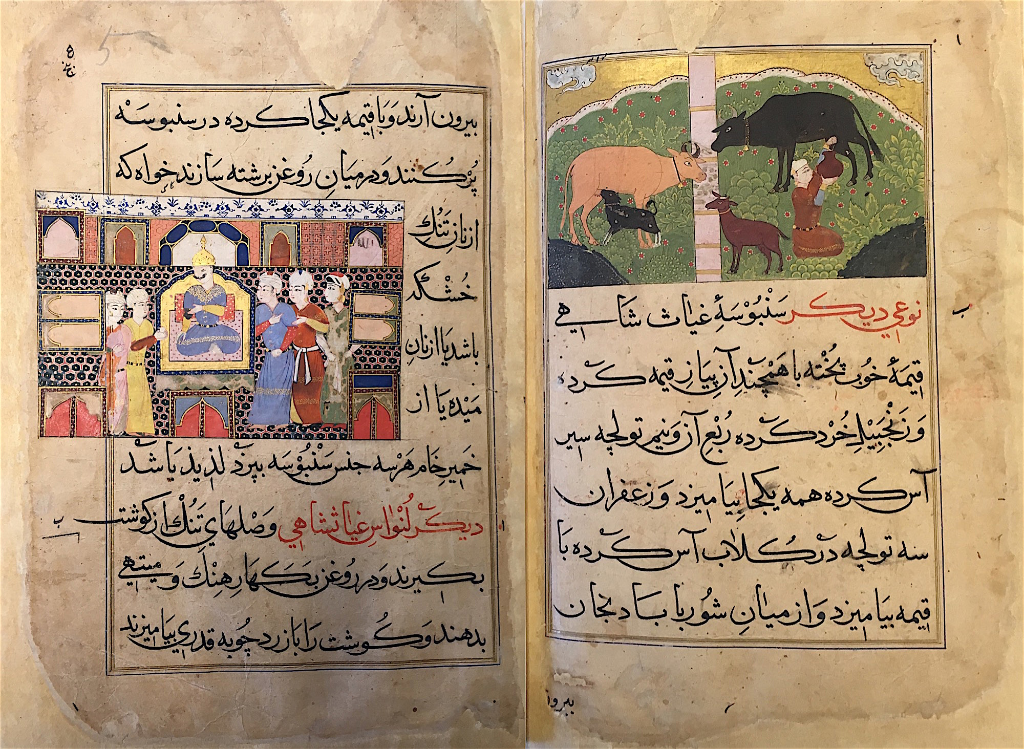 نوعی دیکر سنبوسهٔ غیاث شاهی
قیمهٔ خوب پخته با همچند آن پیاز قیمه کرده
و زنجبیل خرد کرده ربع آن و نیم تولچه سیر
آس کرده همه یکجا بیامیزد و زعفران
سه تولچه در کلاب آس کرده با
قیمه بیامیزد و از میان شوربا بادنجان
بیرون
بیرون آرند و با قیمه یکجا کرده در سنبوسه
پر کنند و در میان روغن برشته سازند خواه که
از نان تنک
خشکه
باشد یا از نان
میده یا از
خمیر خام هر سه جنس سنبوسه بپزد لذیذ باشد
دیکر لنواس غیاثشاهی وصلهای تنک از کوشت
بکیرند و در روغن بکهار هینک و میتهی
بدهند و کوشت را با زردچوبه قدری بیامیزند